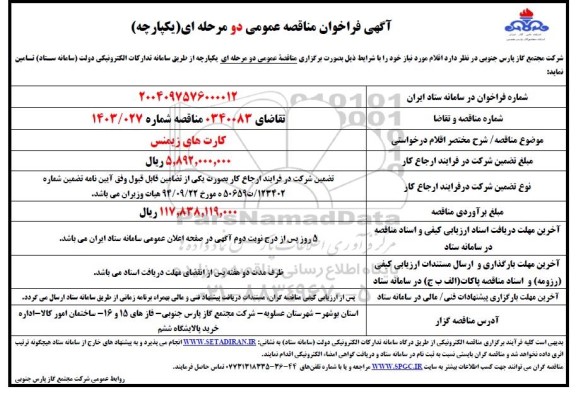 آگهی فراخوان مناقصه عمومی دو مرحله ای(یکپارچه)
شرکت مجتمع گاز پارس جنوبی در نظر دارد اقلام مورد نیاز خود را با شرایط ذیل بصورت برگزاری مناقصه عمومی دو مرحله ای یکپارچه از طریق سامانه تدارکات الکترونیکی دولت (سامانه ستاد) تامین
نماید:
شماره فراخوان در سامانه ستاد ایران
۲۰۰۴۰۹۷۵۷۶۰۰۰۰۱۲
شماره مناقصه و تقاضا
تقاضای ۰۳۴۰۰۸۳ مناقصه شماره ۱۴۰۳/۰۲۷
موضوع مناقصه/ شرح مختصر اقلام درخواستی
کارت های زیمنس
مبلغ تضمین شرکت در فرایند ارجاع کار
۵,۸۹۲,۰۰۰,۰۰۰ ریال
نوع تضمین شرکت درفرایند ارجاع کار
تضمین شرکت در فرایند ارجاع کار بصورت یکی از تضامین قابل قبول وفق آیین نامه تضمین شماره
۱۲۳۴۰۲/ت۵۰۶۵۹ ه مورخ ۹۴/۰۹/۲۲ هیات وزیران می باشد.
مبلغ برآوردی مناقصه
۱۱۷,۸۳۸,۱۱۹,۰۰۰ ریال
آخرین مهلت دریافت اسناد ارزیابی کیفی و اسناد مناقصه
در سامانه ستاد
۵ روز پس از درج نوبت دوم آگهی در صفحه اعلان عمومی سامانه ستاد ایران می باشد.
آخرین مهلت بارگذاری و ارسال مستندات ارزیابی کیفی
(رزومه) و اسناد مناقصه پاکات(الف ب ج) در سامانه ستاد
ظرف مدت دو هفته پس از انقضای مهلت دریافت اسناد می باشد.
آخرین مهلت بارگزاری پیشنهادات فنی/ مالی در سامانه ستاد
پس از ارزیابی کیفی مناقصه گران، مستندات دریافت پیشنهاد فنی و مالی بهمراه برنامه زمانی از طریق سامانه ستاد ارسال می گردد.
آدرس مناقصه گزار
استان بوشهر- شهرستان عسلویه- شرکت مجتمع گاز پارس جنوبی- فاز های ۱۵ و ۱۶- ساختمان امور کالا-اداره
خرید پالایشگاه ششم
بدیهی است کلیه فرآیند برگزاری مناقصه الکترونیکی از طریق درگاه سامانه تدارکات الکترونیکی دولت (سامانه ستاد) به نشانی: WWW.SETADIRAN.IR انجام می پذیرد و به پیشنهاد های خارج از سامانه ستاد هیچگونه ترتیب
اثری داده نخواهد شد و مناقصه گران بایستی نسبت به ثبت نام در سامانه ستاد و دریافت گواهی امضاء الکترونیکی اقدام نمایند.
مناقصه گران می توانند جهت کسب اطلاعات بیشتر به سایت WWW.SPGC.IR مراجعه و یا با شماره تلفن‌های ۴۴-۳۶-۰۷۷۳۱۳۱۸۳۳۵ تماس حاصل فرمایند.
روابط عمومی شرکت مجتمع گاز پارس جنوبی
ParsNamadData